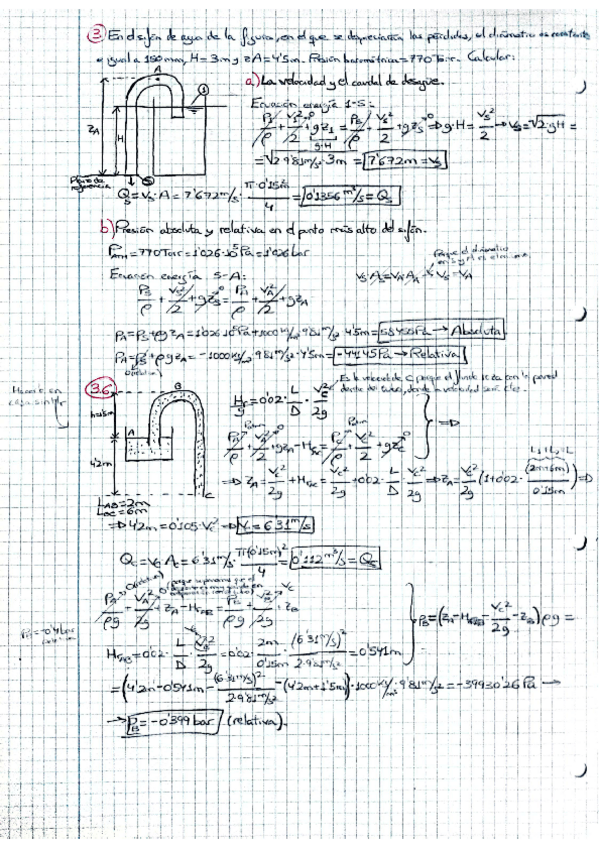 3 En el sifón de agua de la figura, en el que se desprecian las pérdidas, el diámetro es constante
e igual a 150mm, H=3m y zA=4'5m. Presión barométrica=770Torr. Calcular:
a) La velocidad y el caudal de desagüe.
Ecuación energía 1-S:
P1/ρ + V1²/2 + gz1 = PS/ρ + VS²/2 + gzS => g·H = VS²/2 → VS = √2·g·H =
= √2·9'81m/s²·3m = 7'672m = VS
A
1
ZA
H
Plano de
referencia
S
QS = VS·A = 7'672m/s · π·0'15m²/4 = 0'1356 m³/s = QS
b) Presión absoluta y relativa en el punto más alto del sifón.
PATM = 770Torr = 1'026·10⁵Pa = 1'026bar
Ecuación energía S-A:
VS·AS = VA·AA → VS = VA
PS/ρ + VS²/2 + gzS = PA/ρ + VA²/2 + gzA
PA = PS - ρgzA = 1'026·10⁵Pa - 1000kg/m³·9'81m/s²·4'5m = 58455Pa → Absoluta
PA = PS - ρgzA = -1000kg/m³·9'81m/s²·4'5m = -44145Pa → Relativa
0 (relativa)
3.6
Hacerlo en
casa
B
h=1'5m
A
4'2m
C
LAB=2m
LBC=6m
Hr = 0'02 · L/D · VC²/2g
PA/ρg + VA²/2g + zA - HrAC = PC/ρg + VC²/2g + zC
=> zA = VC²/2g + HrAC = VC²/2g + 0'02 · L/D · VC²/2g => zA = VC²/2g (1+0'02 · (2m+6m)/0'15m) =>
L1+L2=L
=> 4'2m = 0'105·VC² => VC = 6'31m/s
QC = VC·AC = 6'31m/s · π(0'15m)²/4 = 0'112m³/s = QC
PA/ρg + VA²/2g + zA - HrAB = PB/ρg + VB²/2g + zB
PB = (zA - HrAB - VC²/2g - zB) ρg =
HrAB = 0'02 · L/D · VC²/2g = 0'02 · 2m/0'15m · (6'31m/s)²/2·9'81m/s² = 0'541m
= (4'2m - 0'541m - (6'31m/s)²/2·9'81m/s² - (4'2m+1'5m)) · 1000kg/m³ · 9'81m/s² = -39930'26Pa →
→ PB = -0'399bar (relativa).